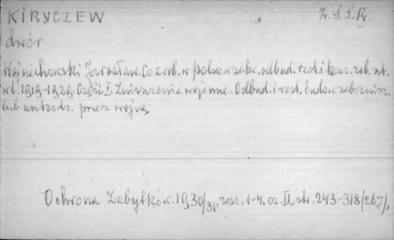 KIRYCZEW Z.S.S.R.
dwór
Wojciechowski Jarosław. Co zrob. w Polsce w zakr. odbud. rest. i kons. zab. szt.
w l. 1919-1929. Część I Zniszczenia wojenne. Odbud. i rest. budow. zabozn. zn.
lub uszkodz. przez wojnę
Ochrona Zabytków. 1930/31, zesz. 1-4, cz. II, str. 243-318/267/,